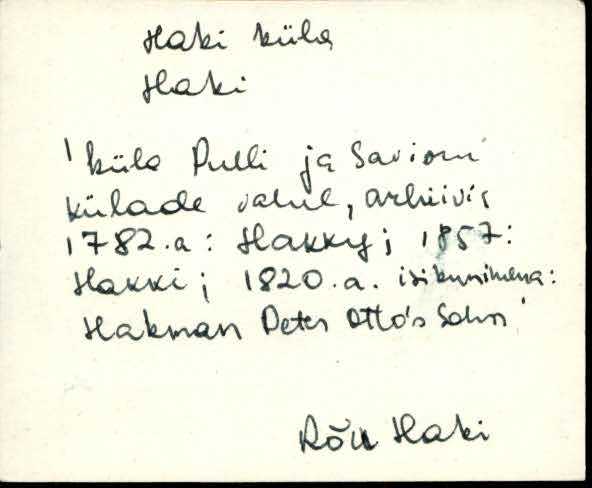 Haki küla
Haki
'küla Pulli ja Saviomi
külade vahel, arhiivis
1782.a: Hakky; 1857:
Hakki; 1820.a. isikunimena:
Hakman Peter Otto's Sohn'
Rõu Haki